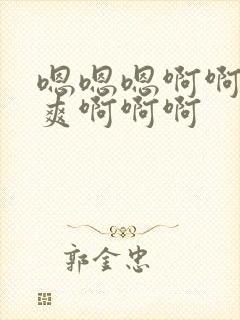 嗯嗯嗯啊啊
爽啊啊啊
郭金忠